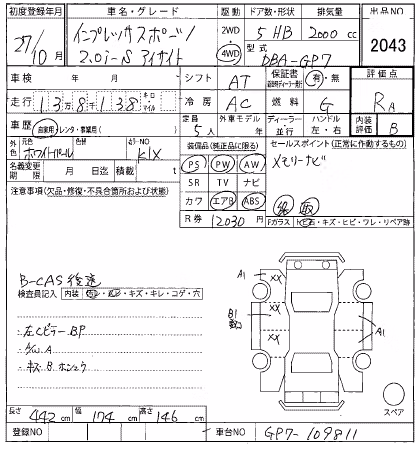 初度登録年月 車名・グレード 駆動 ドア数・形状 排気量 出品NO
27/10月 インプレッサスポーツ 2.0i-S アイサイト 2WD 4WD 5 HB 2000 cc 2043
型式 DBA-GP7
車検 年 月 シフト AT 保証書 有・無 評価点
走行 13万8千138 キロ マイル 冷房 AC 燃料 G RA
車歴 自家用・レンタ・事業用( ) 定員 5人 外車モデル 年 ディーラー・並行 ハンドル 左・右 内装評価 B
外色 元色 ホワイトパール 色替 カラーNO K1X
装備品(純正品に限る) セールスポイント(正常に作動するもの)
名義変更期限 月 日迄 積載 t
PS PW AW メモリーナビ
注意事項(欠品・修復・不具合箇所および状態)
SR TV ナビ
カワ エアB ABS 記 取
R券 12030円 Fガラス トビ石・キズ・ヒビ・ワレ・リペア跡
B-CAS後送
検査員記入 内装
・キズ・キレ・コゲ・穴
A1 XX
XX
B1
A1
左Cピラー BP
A
キズ B ホシュウ
スペア
長さ 442 cm 幅 174 cm 高さ 146 cm
登録NO 車台NO GP7-109811